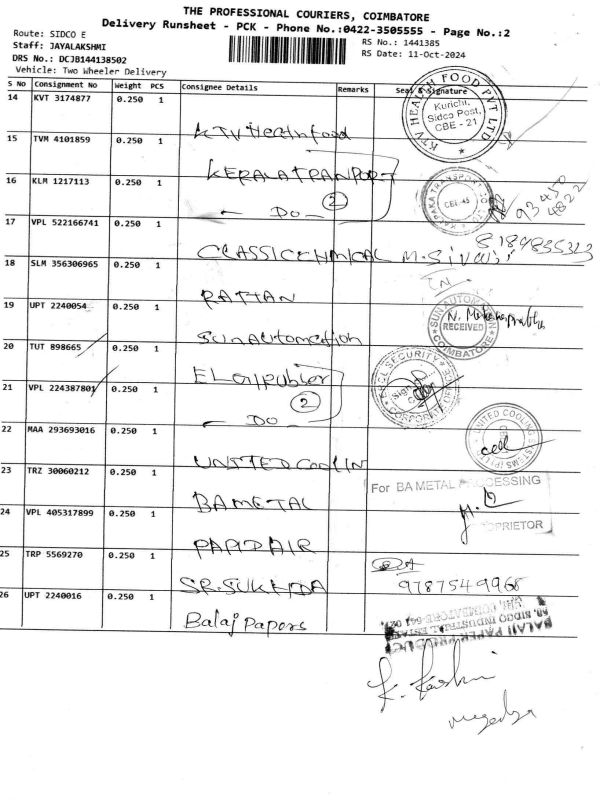 THE PROFESSIONAL COURIERS, COIMBATORE
Delivery Runsheet - PCK - Phone No.:0422-3505555 - Page No.:2
Route: SIDCO E
Staff: JAYALAKSHMI
DRS No.: DCJB144138502
Vehicle: Two Wheeler Delivery
RS No.: 1441385
RS Date: 11-Oct-2024
S No Consignment No Weight PCS Consignee Details Remarks Seal & Signature
14 KVT 3174877 0.250 1 KTV Health food
KTV HEALTH FOOD PVT LTD
Kurichi,
Sidco Post,
CBE - 21
15 TVM 4101859 0.250 1 KERALA TRANPORT
16 KLM 1217113 0.250 1 DO 2
CBE-45
93450
4822
17 VPL 522166741 0.250 1 CLASSICEHMICAL
8184835323
18 SLM 356306965 0.250 1 RATTAN
19 UPT 2240054 0.250 1 SUN Automation
SUN AUTOMATION
RECEIVED
COIMBATORE
20 TUT 898665 0.250 1
21 VPL 224387801 0.250 1 DO 2
22 MAA 293693016 0.250 1 UNITED COOLIN
UNITED COOLING SYSTEMS (P) LTD
23 TRZ 30060212 0.250 1 BA METAL
For BA METAL PROCESSING
PROPRIETOR
24 VPL 405317899 0.250 1
25 TRP 5569270 0.250 1 SR.SUKHDA
9787549968
26 UPT 2240016 0.250 1 Balaj Papers
BALAJI PAPER PRODUCT
SIDCO INDUSTRIAL ESTATE